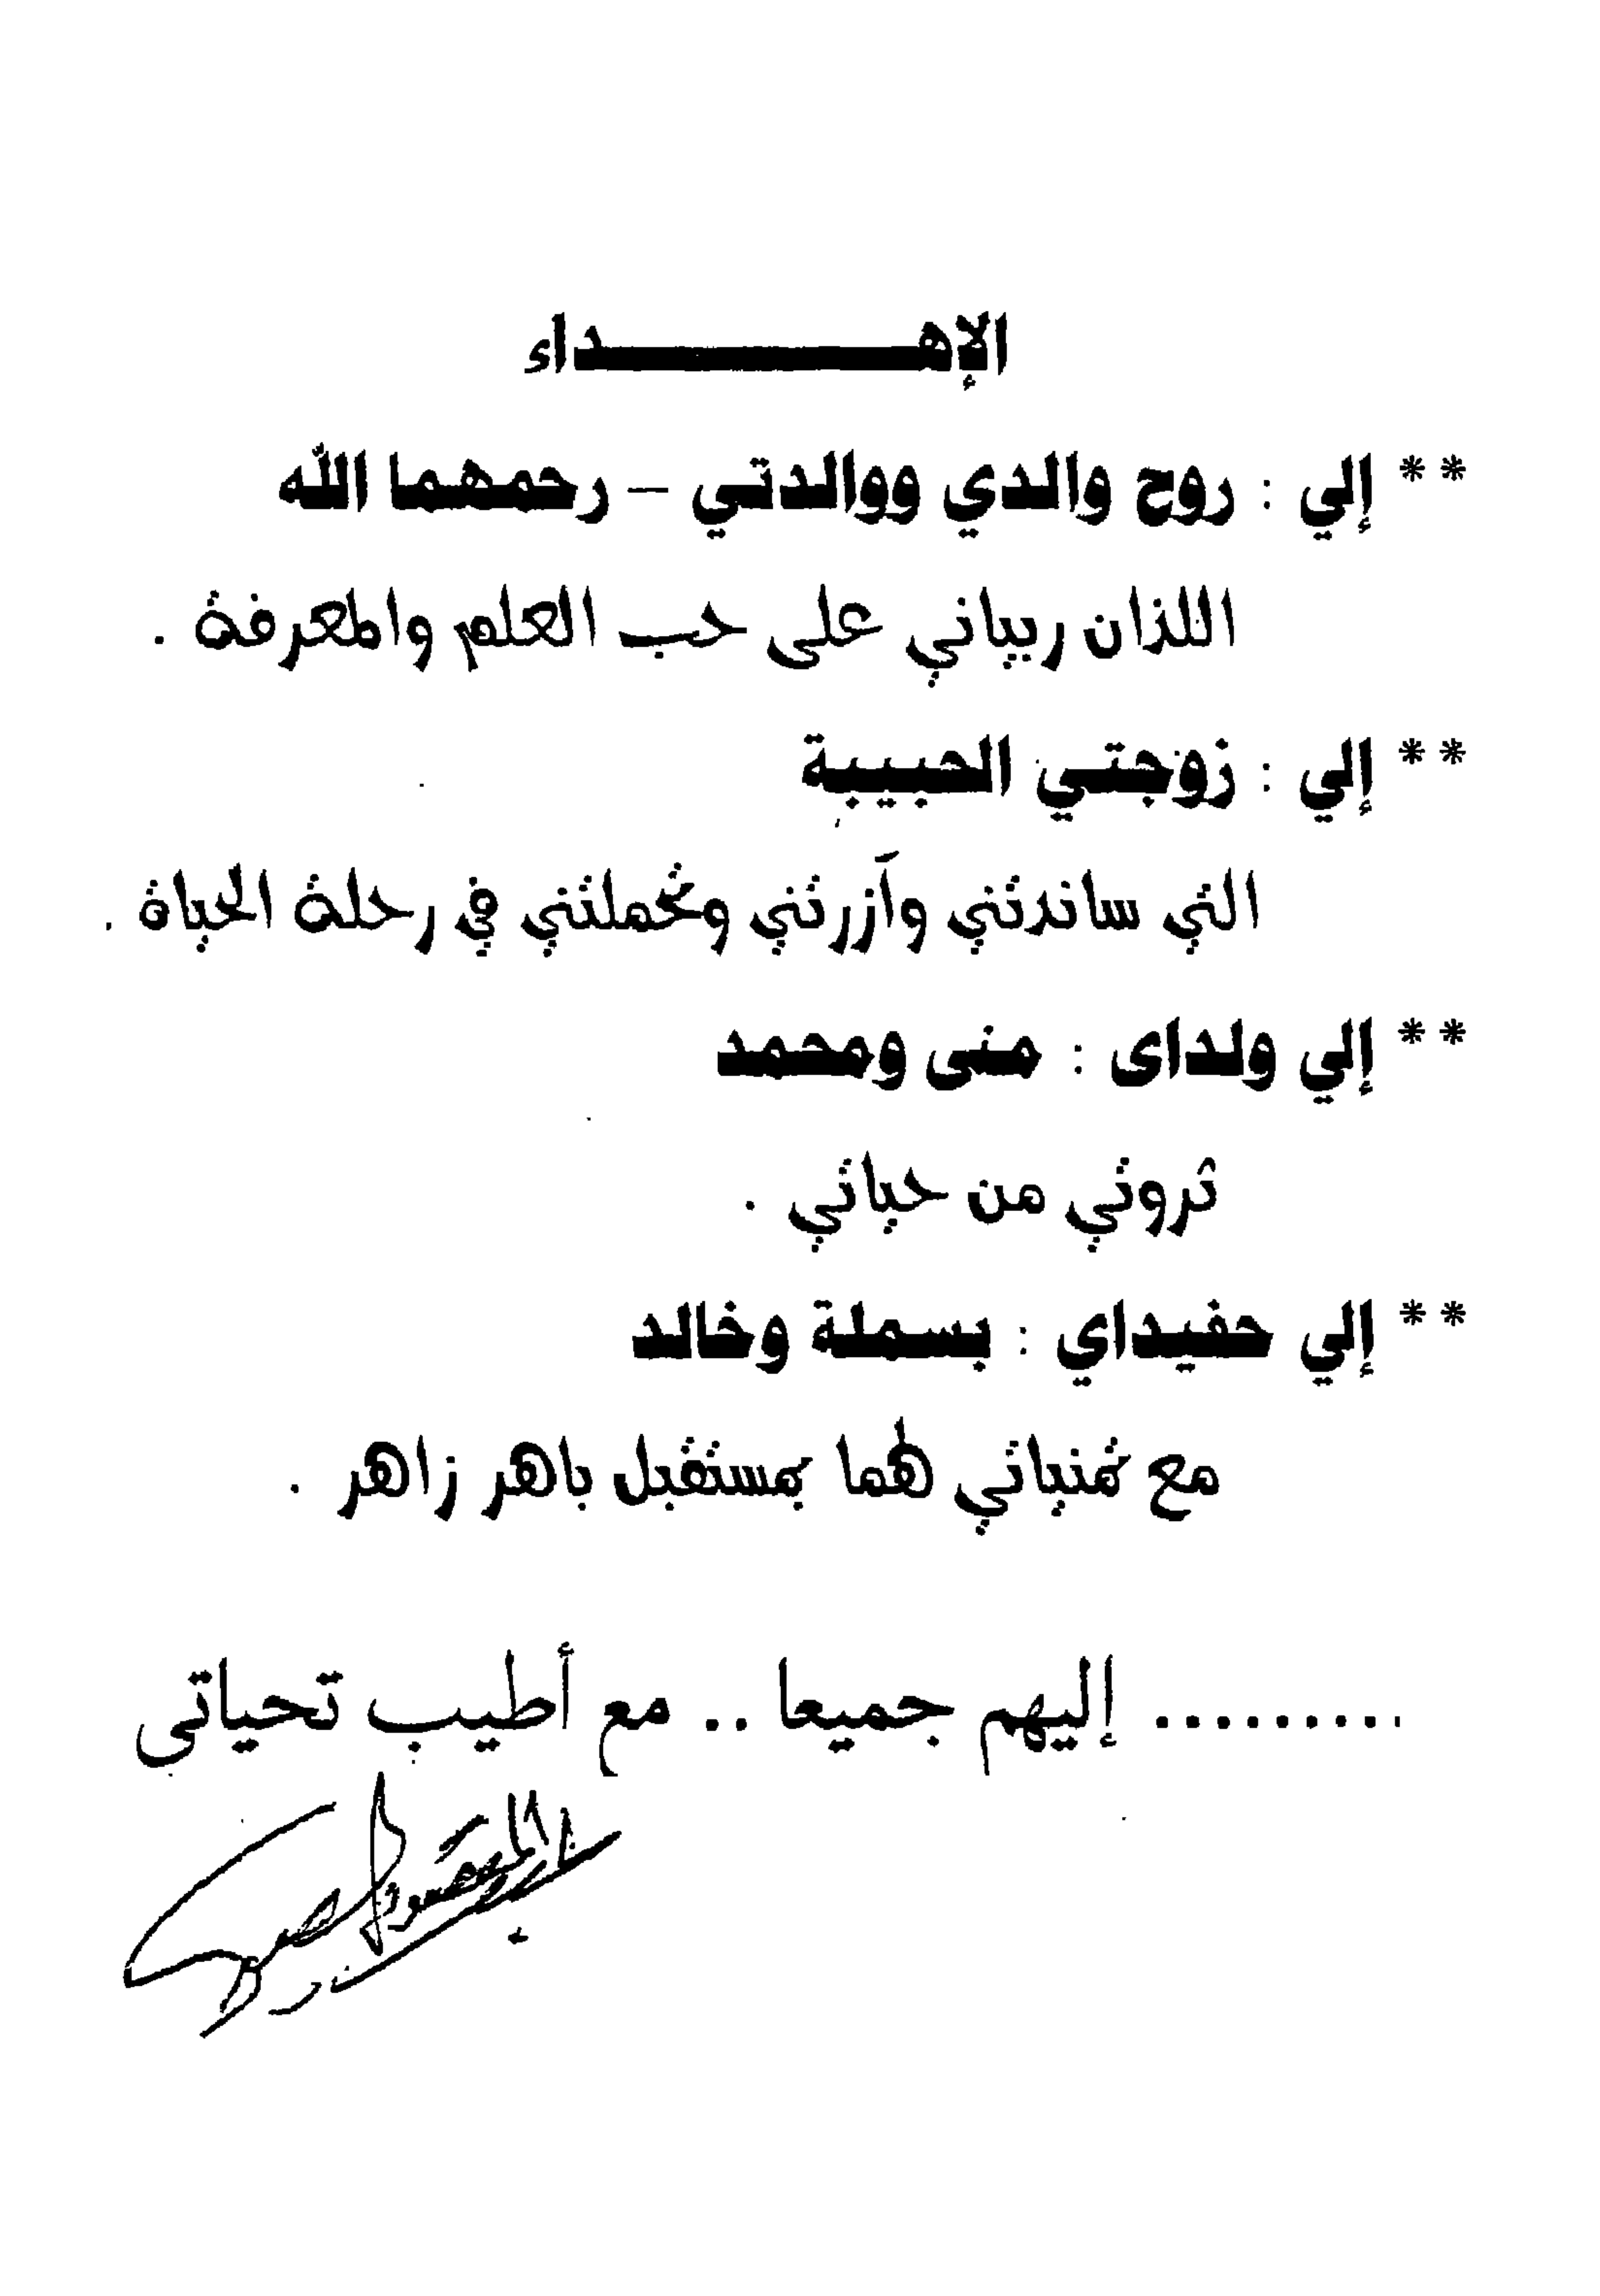 الإهــــــــــداء
** إلي : روح والدي ووالدتي – رحمهما الله
اللذان ربياني على حب العلم والمعرفة .
** إلي : زوجتي الحبيبة
التي ساندتني وآزرتني وتحملتني في رحلة الحياة .
** إلي ولداى : منى ومحمد
ثروتي من حياتي .
** إلي حفيداي : بسملة وخالد
مع تمنياتي لهما بمستقبل باهر زاهر .
......... إليهم جميعا .. مع أطيب تحياتى